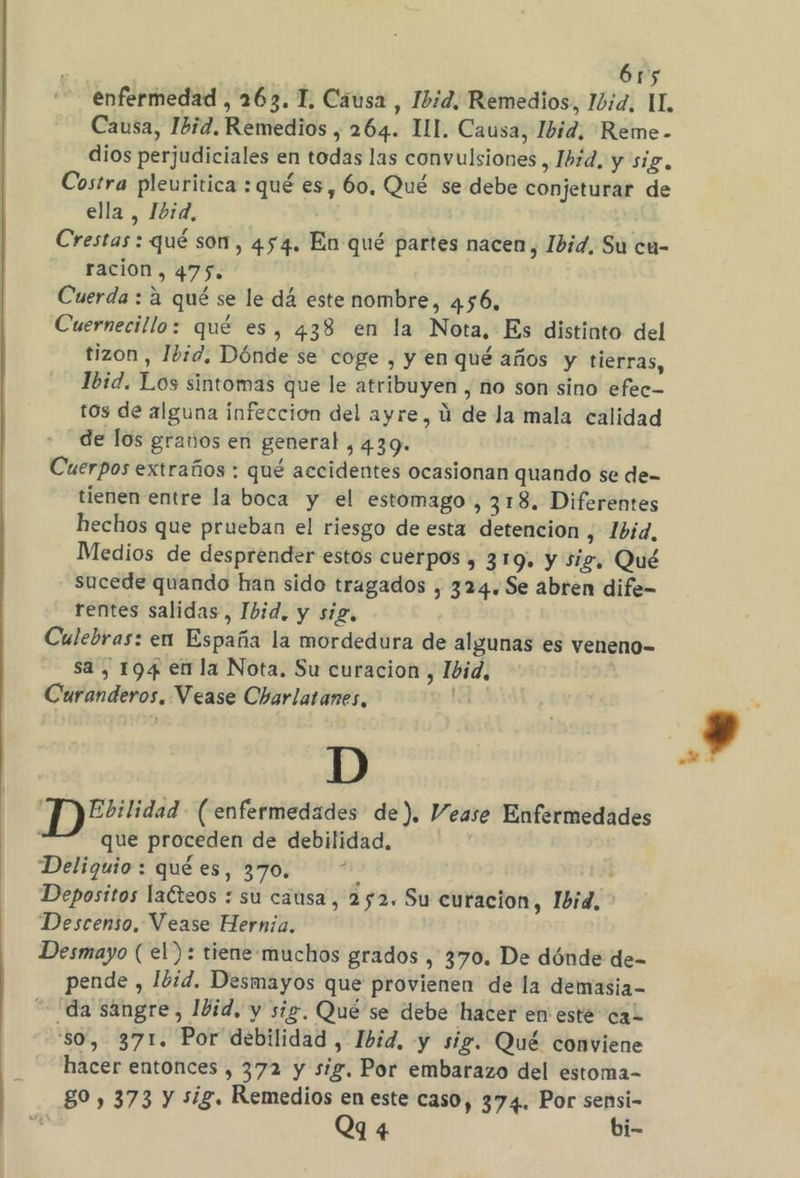 615
enfermedad , 263. I. Causa , Ibid. Remedios, Ibid. II.
Causa, Ibid. Remedios , 264. III. Causa, Ibid. Reme-
dios perjudiciales en todas las convulsiones , Ibid. y sig.
Costra pleuritica : qué es, 60. Qué se debe conjeturar de
ella , Ibid.
Crestas : qué son , 454. En qué partes nacen, Ibid. Su cu-
racion , 475.
Cuerda : à qué se le dá este nombre, 456.
Cuernecillo : qué es , 438 en la Nota. Es distinto del
tizon , Ibid. Dónde se coge , y en qué años y tierras,
Ibid. Los sintomas que le atribuyen , no son sino efec-
tos de alguna infeccion del ayre, ù de la mala calidad
de los granos en general , 439.
Cuerpos extraños : qué accidentes ocasionan quando se de-
tienen entre la boca y el estomago , 318. Diferentes
hechos que prueban el riesgo de esta detencion , Ibid.
Medios de desprender estos cuerpos , 319. y sig. Qué
sucede quando han sido tragados , 324. Se abren dife-
rentes salidas , Ibid. y sig.
Culebras: en España la mordedura de algunas es veneno-
sa , 194 en la Nota. Su curacion , Ibid.
Curanderos. Vease Charlatanes.
D
DEbilidad ( enfermedades de). Vease Enfermedades
que proceden de debilidad.
Deliquio : qué es, 370.
Depositos lacteos : su causa, 252. Su curacion, Ibid.
Descenso. Vease Hernia.
Desmayo ( el ) : tiene muchos grados , 370. De dónde de-
pende , Ibid. Desmayos que provienen de la demasia-
da sangre, Ibid. y sig. Qué se debe hacer en este ca-
so, 371. Por debilidad , Ibid. y sig. Qué conviene
hacer entonces , 372 y sig. Por embarazo del estoma-
go , 373 y sig. Remedios en este caso, 374. Por sensi-
Qq 4 bi-